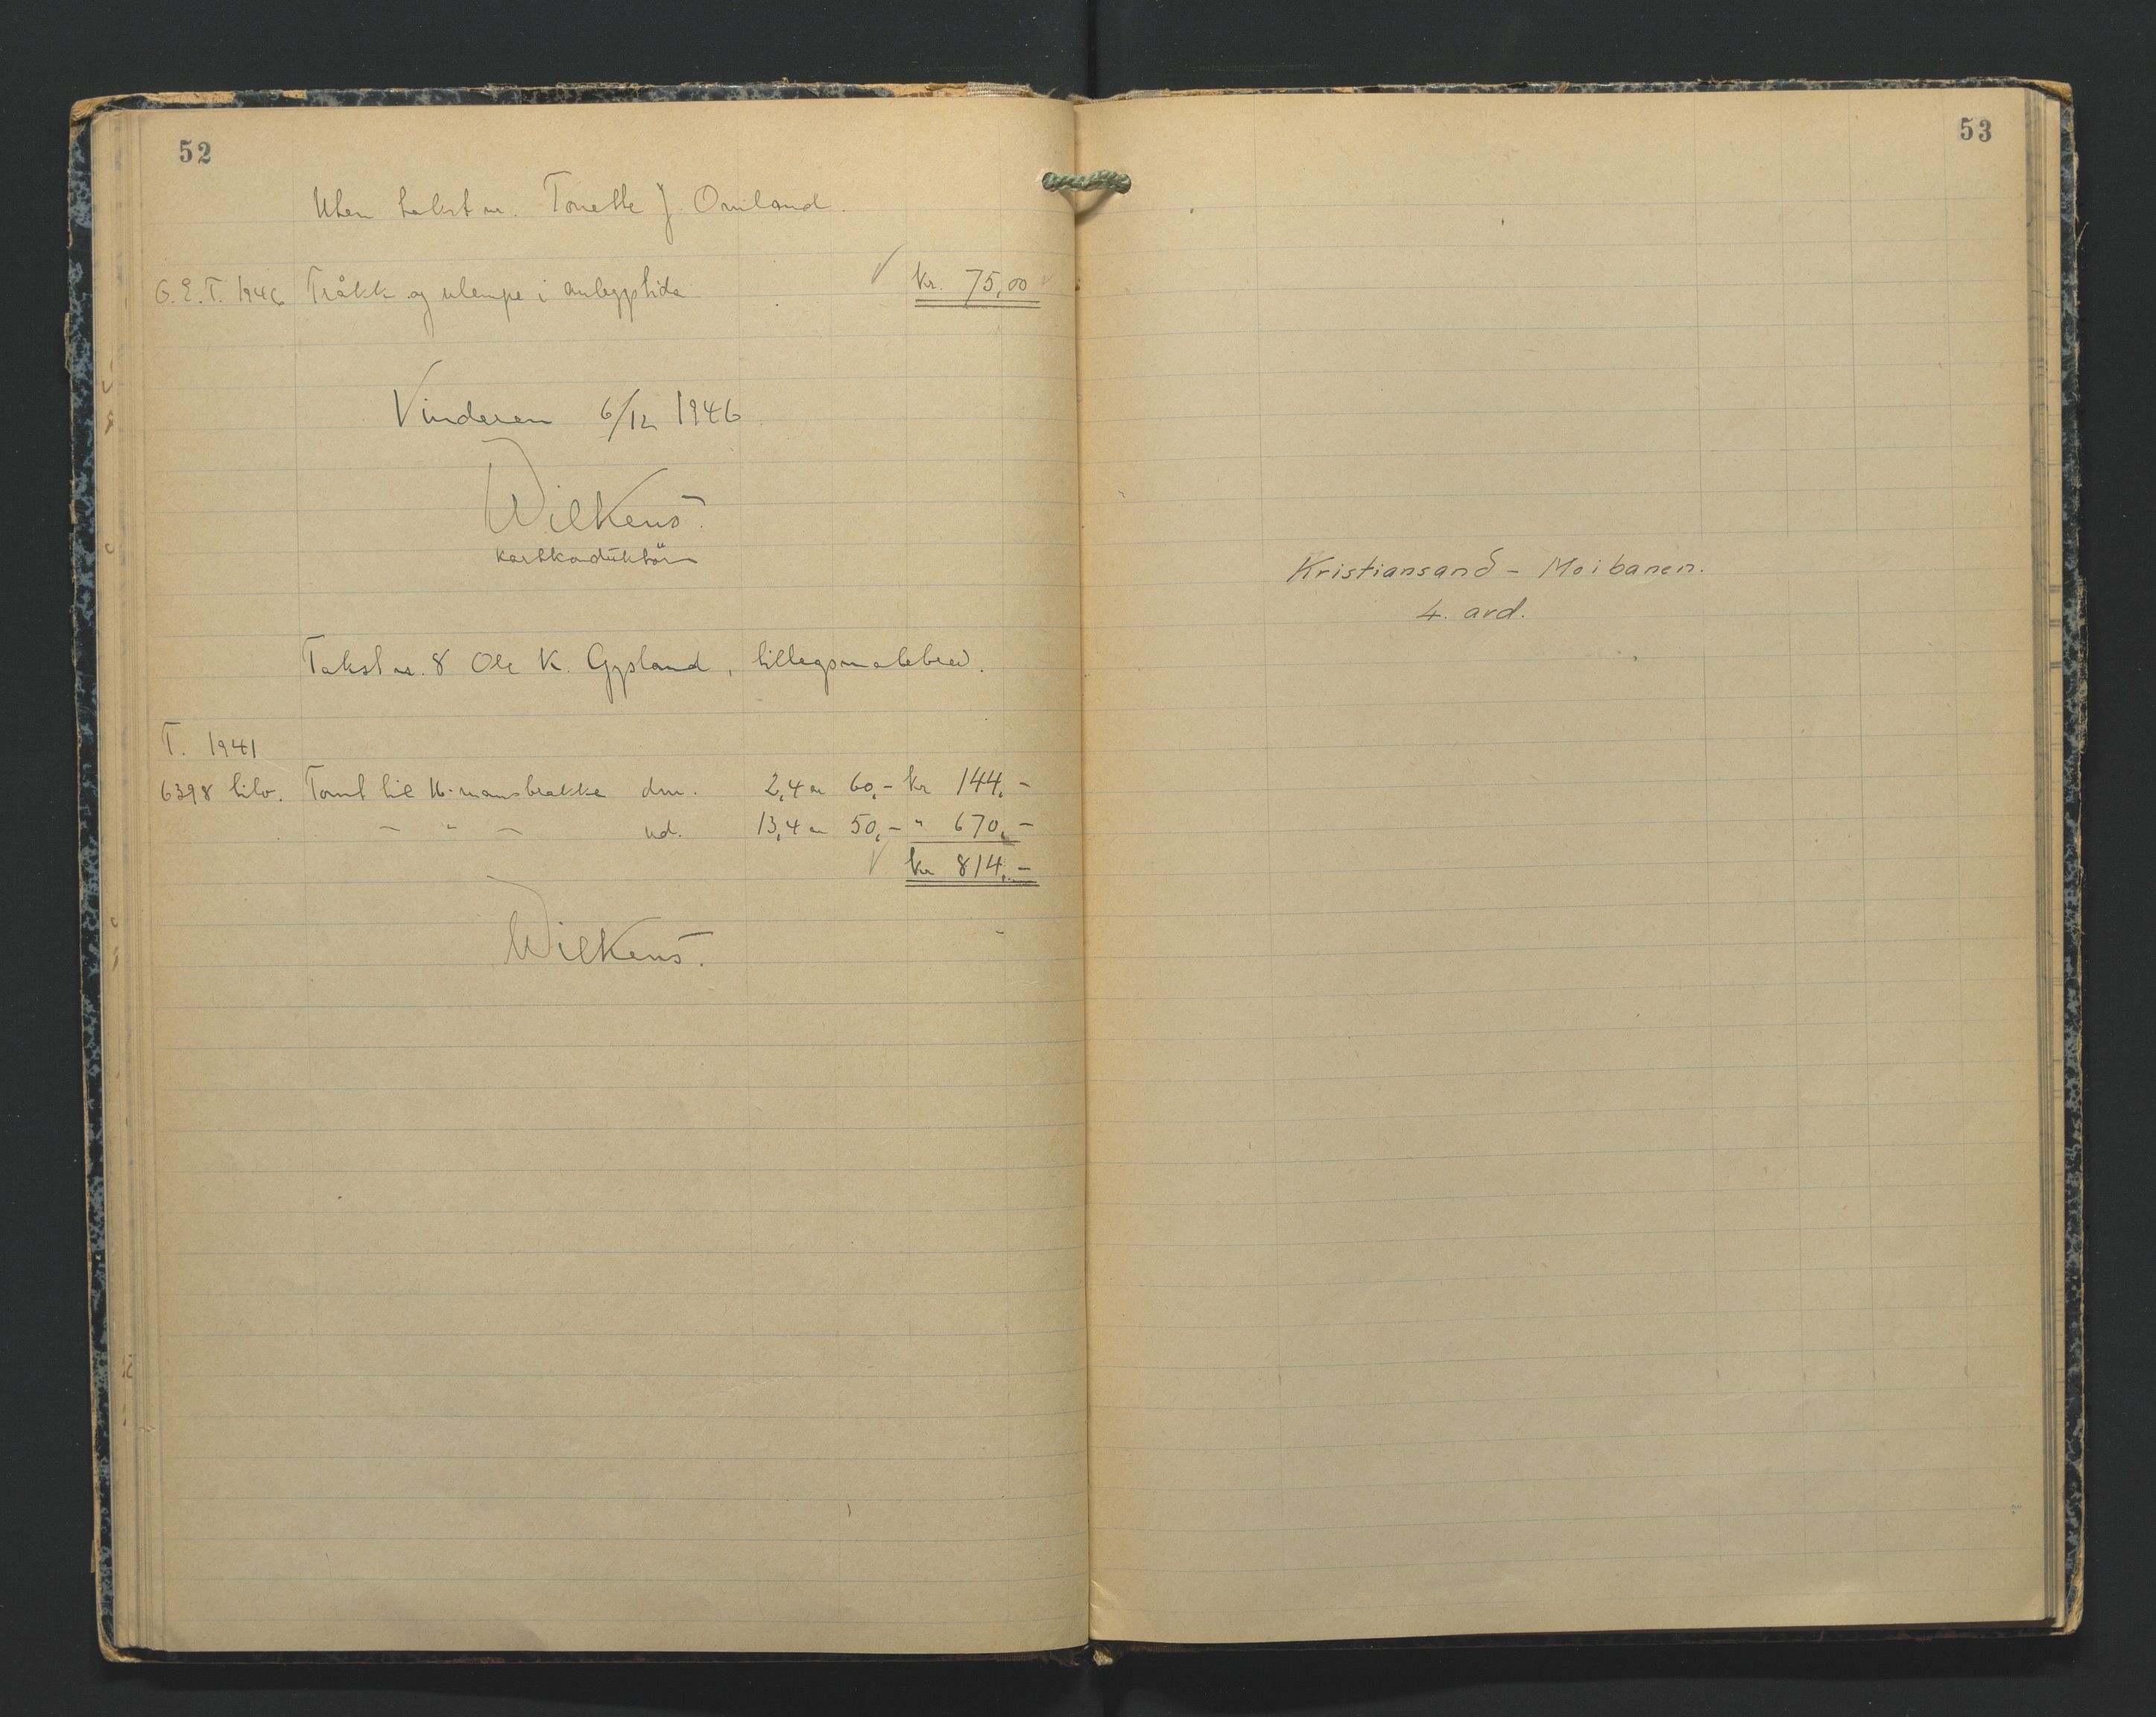 52
Uten takst nr. Tonette J Omland.
G.E.T. 1946 Tråkk og ulempe i anleggstida kr. 75,00
Vinderen 6/12 1946
Wilkens.
kartkonduktör
Takst nr. 8 Ole K. Gysland, tillegsmålebrev.
T. 1941
6398 tilv. Tomt til 16-mansbrakke drm. 2,4 ar 60,- kr 144,-
- " - ud. 13,4 ar 50,- " 670,-
kr 814,-
Wilkens.
53
Kristiansand - Moibanen.
4. avd.